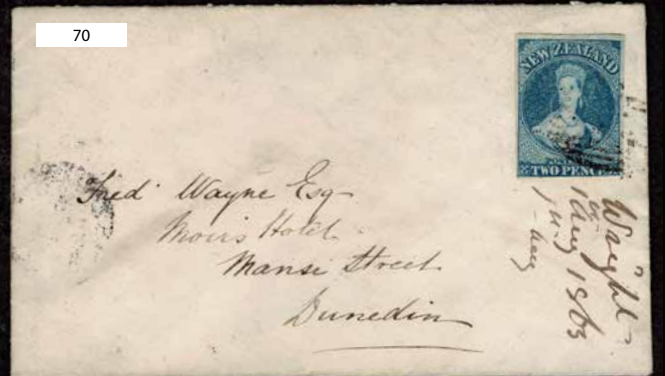 70
NEW ZEALAND
TWO PENCE
Fred Wayne Esq
Moirs Hotel
Manse Street
Dunedin
Wright
1 Aug 1863
Aug